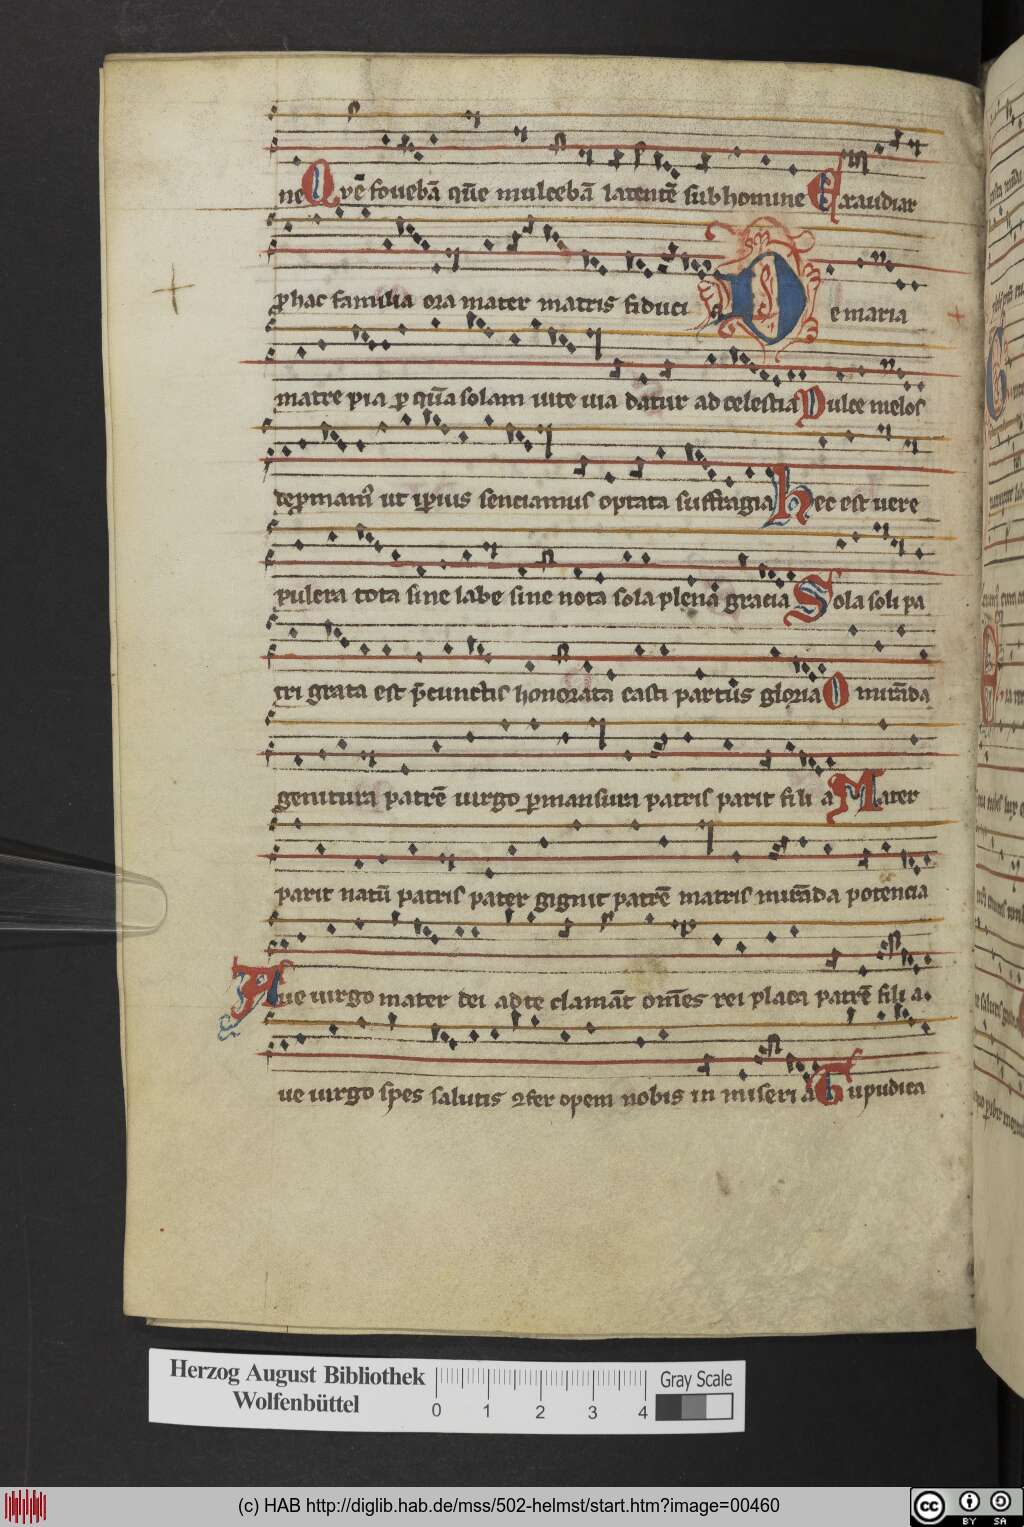 ne Que᷉ fouebā quē mulcebā latentē sub homine Exaudiar
ꝓ hac familia ora mater matris fiduci a De maria
matre pia ꝓ quā solam uite uia datur ad celestia Dulce melos
ut ipsius senciamus optata suffragia hec est uere
pulcra tota sine labe sine nota sola plena gracia Sola soli pa
tri grata est p̄ cunctis honorata casti partus gloria O mirāda
genitura patrē uirgo ꝑmansura patris parit fili a Mater
parit natū patris pater gignit patrē matris mirāda potencia
Aue uirgo mater dei ad te clamāt om̄es rei placa patrē fili a.
ue uirgo spes salutis ꝯfer opem nobis in miseri a Tu pudica
Herzog August Bibliothek
Wolfenbüttel
0 1 2 3 4
Gray Scale
(c) HAB http://diglib.hab.de/mss/502-helmst/start.htm?image=00460
cc BY SA